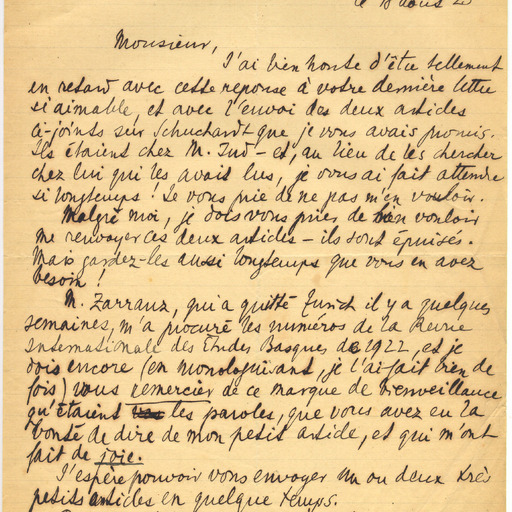 le 18 août 25
Monsieur,
J'ai bien honte d'être tellement
en retard avec cette reponse à votre dernière lettre
si aimable, et avec l'envoi des deux articles
ci-joints sur Schuchardt que je vous avais promis.
Ils étaient chez M. Jud – et, au lieu de les chercher
chez lui qui les avait lus, je vous ai fait attendre
si longtemps! Je vous prie de ne pas m'en vouloir.
Malgré moi, je dois vous prier de bien vouloir
me renvoyer ces deux articles – ils sont épuisés.
Mais gardez-les aussi longtemps que vous en avez
besoin!
M. Zarranz, qui a quitté Zurich il y a quelques
semaines, m'a procuré les numéros de la Revue
Internationale des Etudes Basques de 1922, et je
dois encore (en monologuisant, je l'ai fait bien de
fois) vous remercier de ce marque de bienveillance
qu'étaient les paroles, que vous avez eu la
bonté de dire de mon petit article, et qui m'ont
fait de joie.
J'espère pouvoir vous envoyer un ou deux très
petits articles en quelque temps.